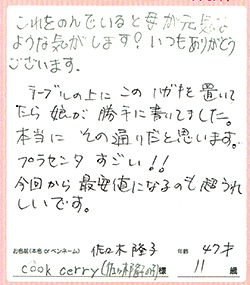 これをのんでいると母が元気な
ような気がします！いつもありがとう
ございます。
テーブルの上にこのハガキを置いて
たら娘が勝手に書いてました。
本当にその通りだと思います。
プラセンタすごい!!
今回から最安値になるのも超うれ
しいです。
お名前(本名orペンネーム) 佐々木隆子 年齢 47才
cook cerry(佐々木 の)様 11歳